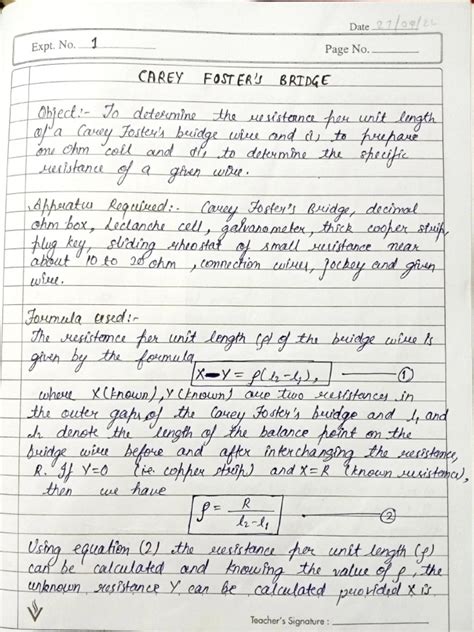 Date 27/09/22
Expt. No. 1
Page No.
CAREY FOSTER'S BRIDGE
Object:- To determine the resistance per unit length
of a Carey Foster's bridge wire and di, to prepare
one ohm coil and di, to determine the specific
resistance of a given wire.
Appratus Required:- Carey Foster's Bridge, decimal
ohm box, Leclanche cell, galvanometer, thick cooper strip,
plug key, sliding rheostat of small resistance near
about 10 to 20 ohm, connection wires, jockey and given
wire.
Formula used:-
The resistance per unit length (ρ) of the bridge wire is
given by the formula
X-Y = ρ(l2-l1), ① 
where X (known), Y (known) are two resistances in
the outer gaps of the Carey Foster's bridge and l1 and
l2 denote the length of the balance point on the
bridge wire before and after interchanging the resistance
R. If Y=0 (i.e. copper strip) and X=R (known resistance),
then we have
ρ = R / l2-l1 ②
Using equation (2) the resistance per unit length (ρ)
can be calculated and knowing the value of ρ, the
unknown resistance Y can be calculated provided X is
Teacher's Signature :